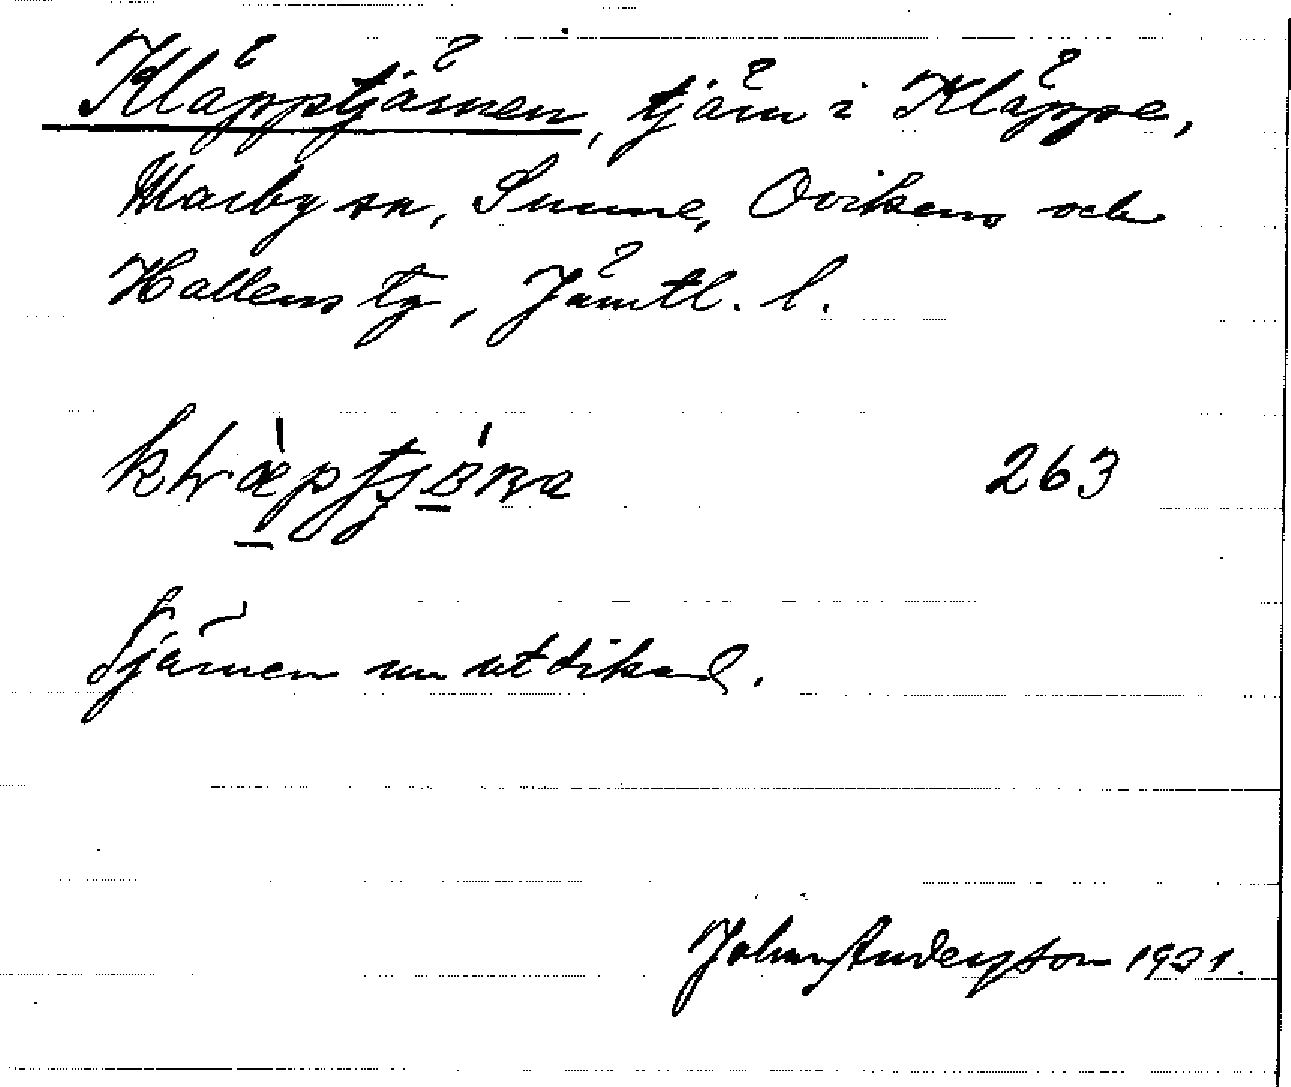 Kläpptjärnen, tjärn i Kläppe,
Marby sn, Sunne, Ovikens och
Hallens tg, Jämtl. l.
263
Tjärnen nu utdikad.
Johan Anderzson 1931.